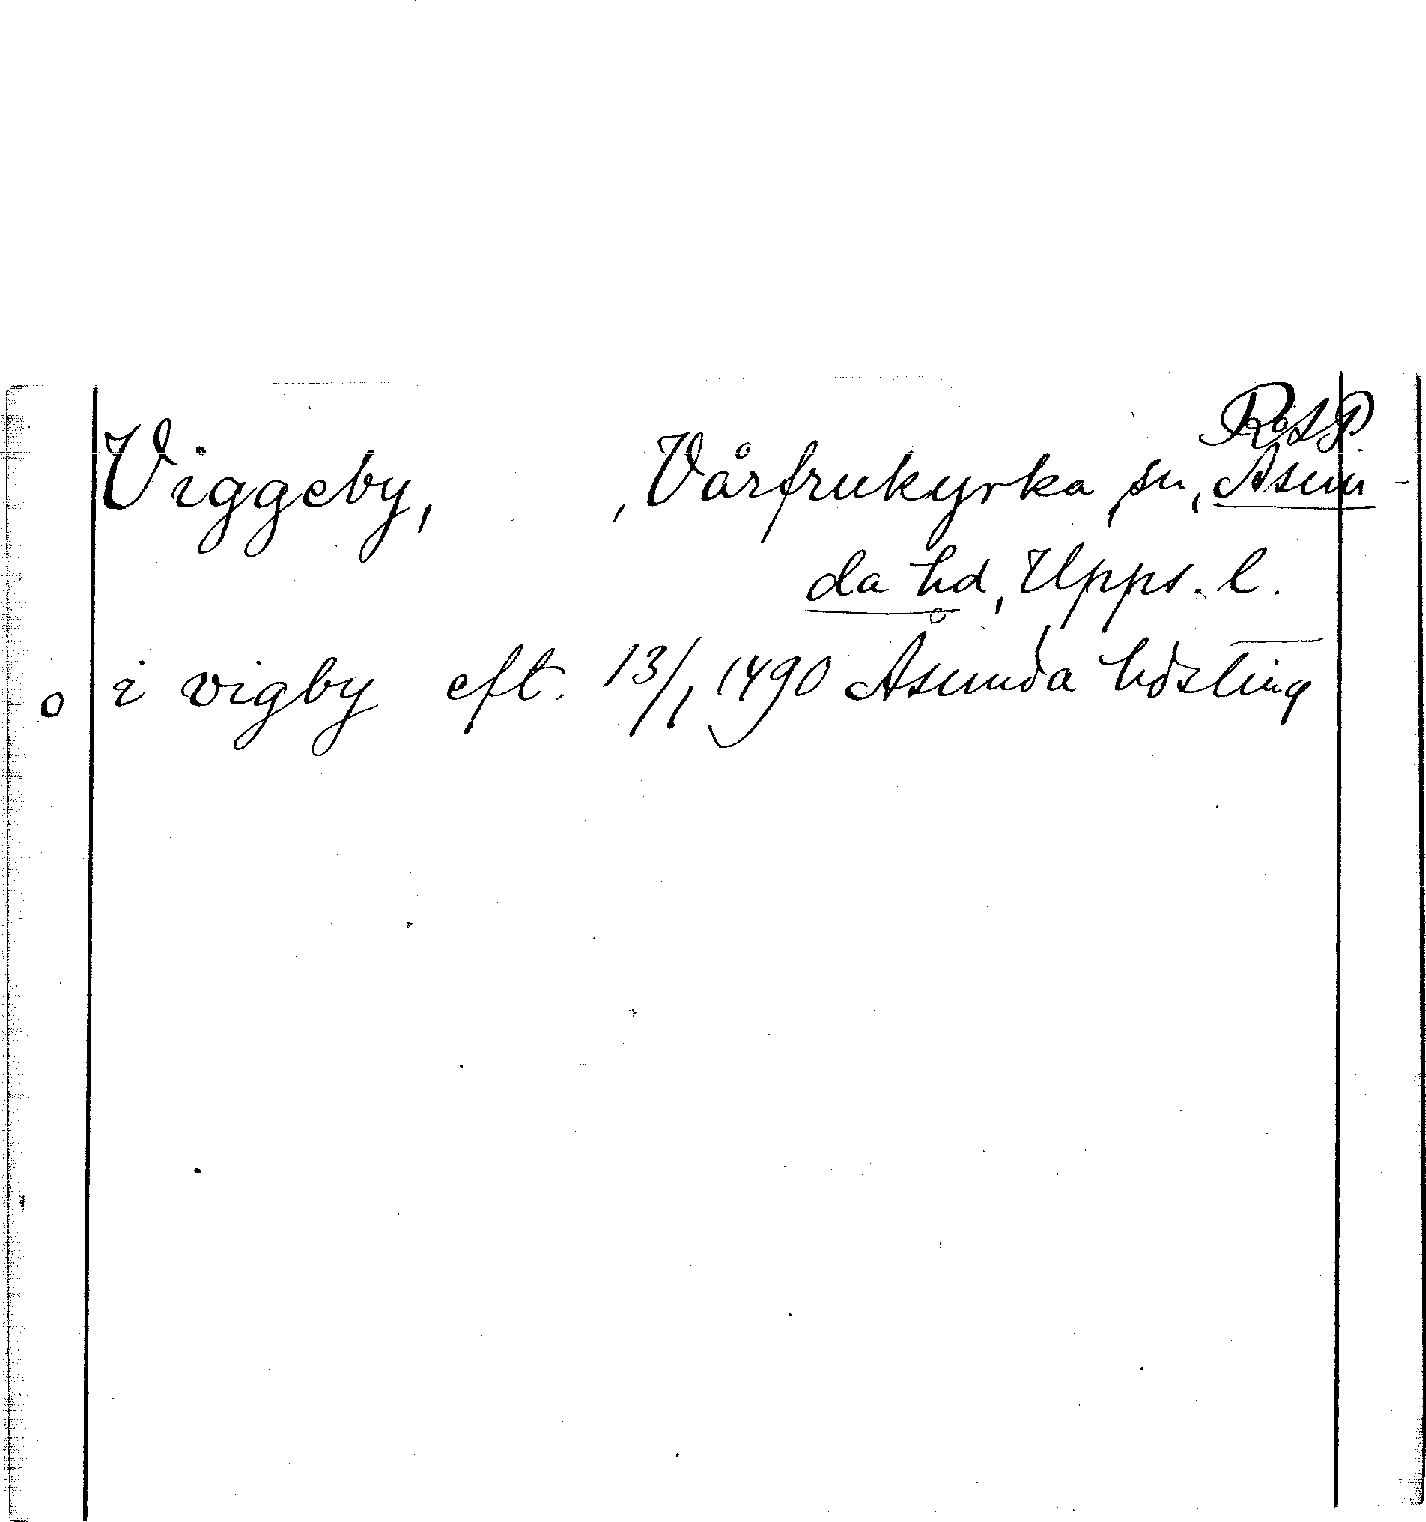 Viggeby, , Vårfrukyrka sn, Åsun-
da hd, Upps. l.
o i vigby eft. 13/1 1490 Åsunda hdsting